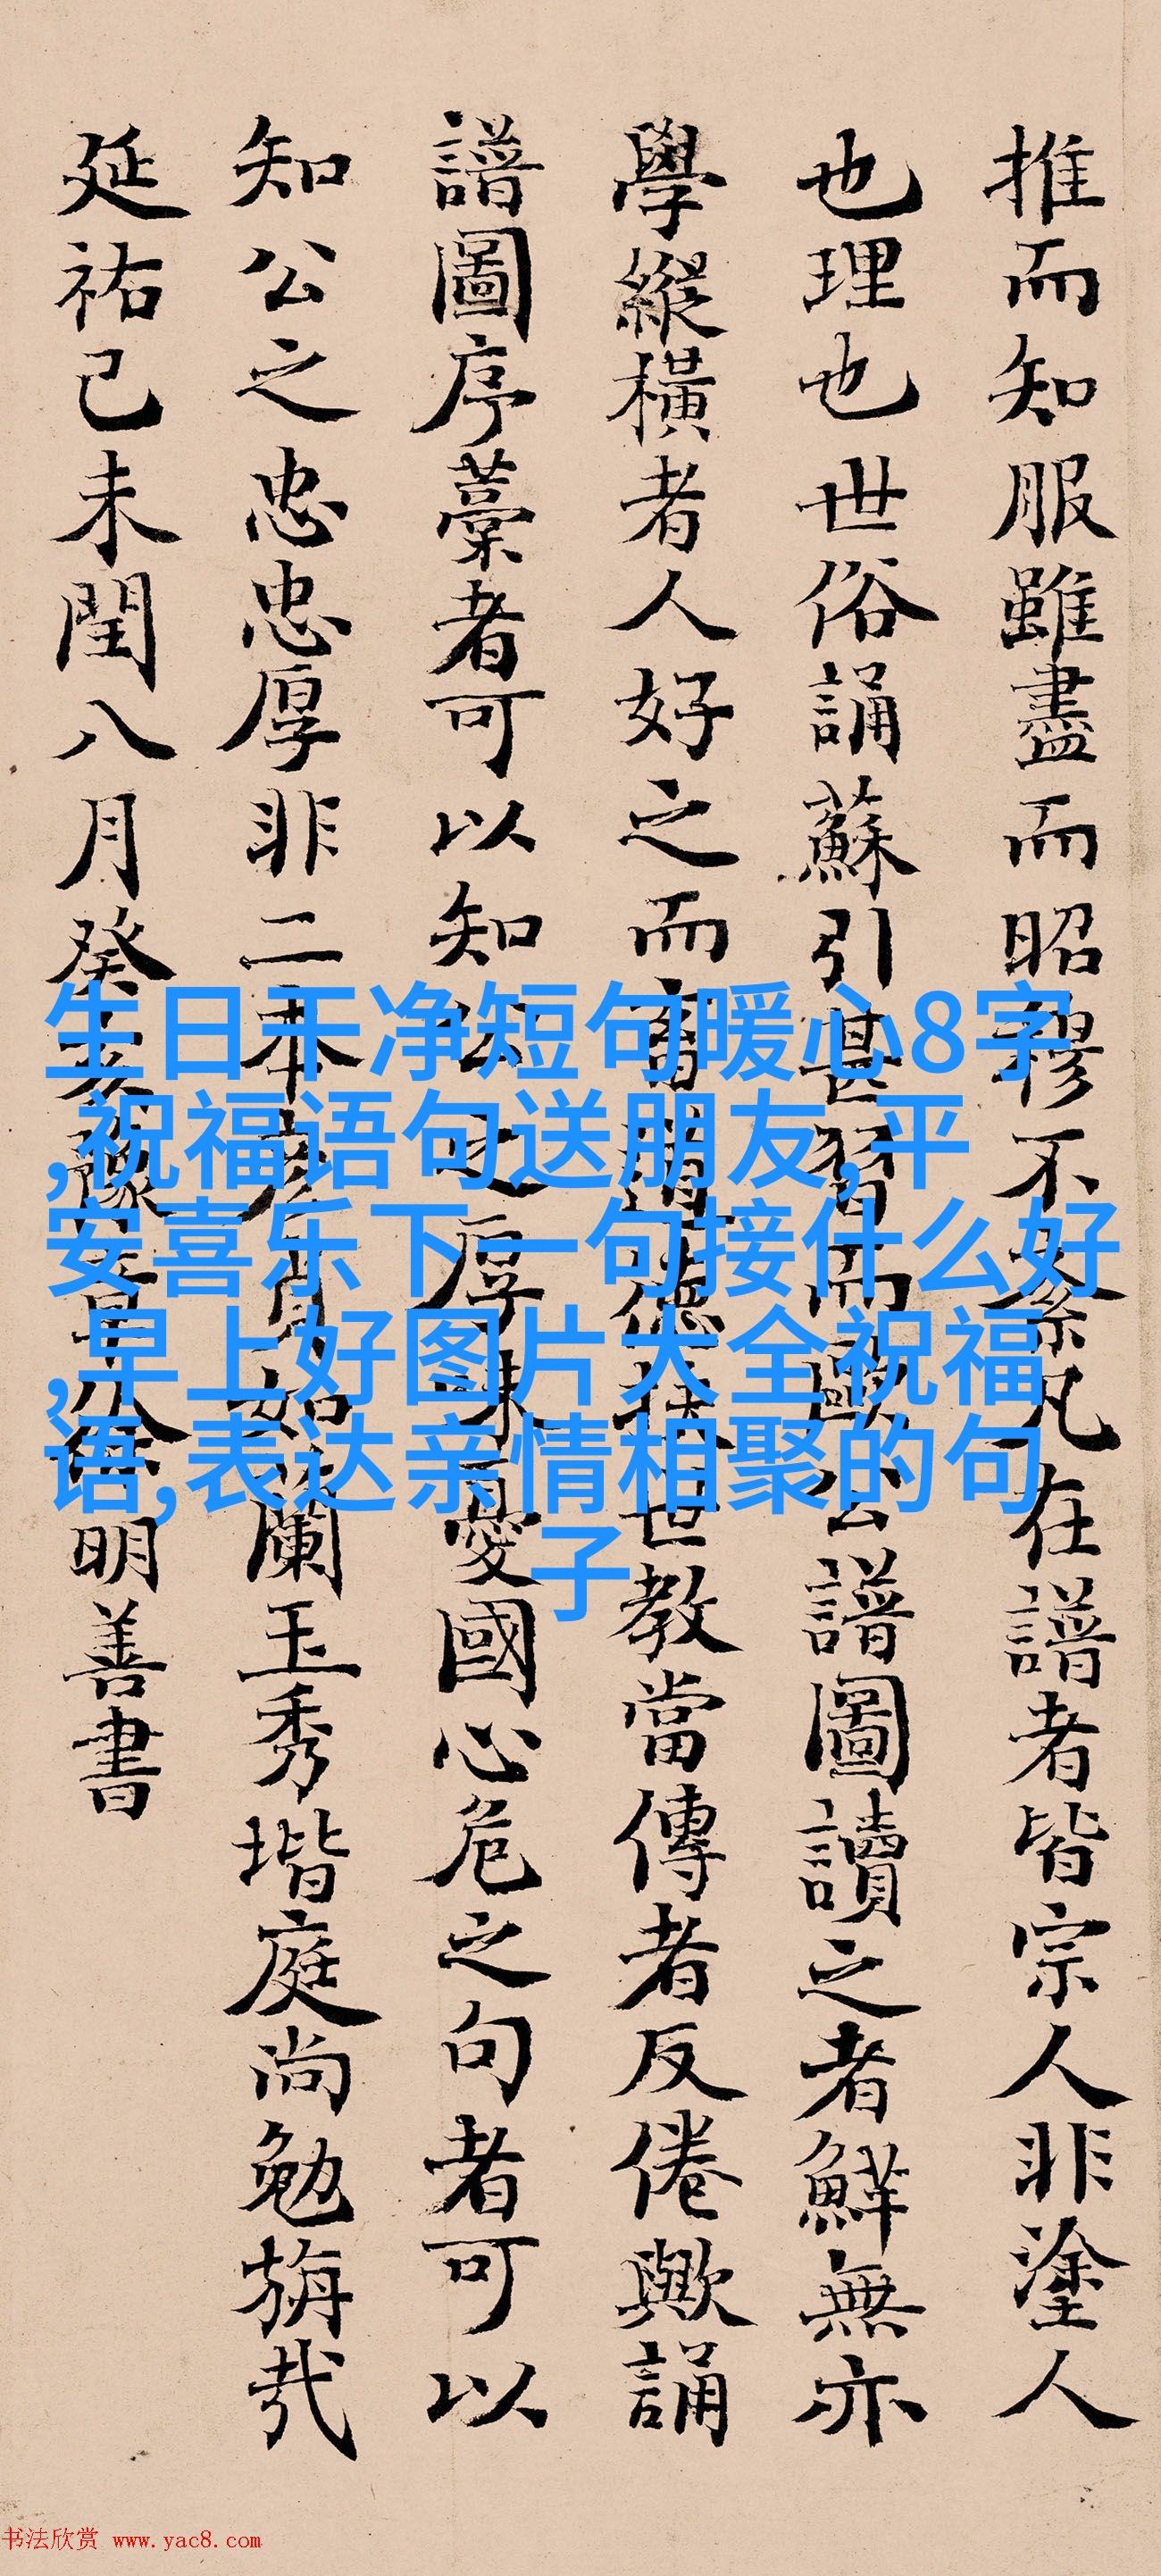 推而知服雖盡而昭穆不紊凡在譜者皆宗人非塗人
也理也世俗誦蘇引甚習而歐公譜圖讀之者鮮無亦
學縱橫者人好之而齊世教當傳者反倦歟誦
譜圖序藁者可以知公之厚味愛國心危之句者可以
知公之忠忠厚非二本如蘭玉秀堦庭尚勉旃哉
延祐己未閏八月癸明善書
生日干净短句暖心8字
,祝福语句送朋友,平
安喜乐下一句接什么好
,早上好图片大全祝福
语,表达亲情相聚的句
子
书法欣赏 www.yac8.com